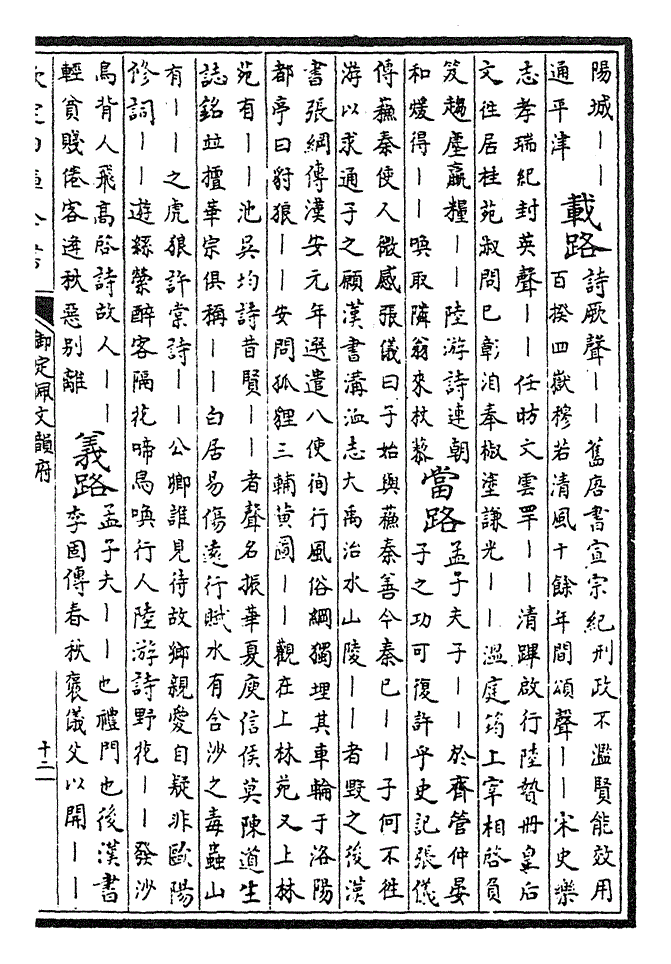 陽城｜｜
通平津
載路
詩厥聲｜｜舊唐書宣宗紀刑政不濫賢能效用
百揆四嶽穆若清風十餘年間頌聲｜｜宋史樂
志孝瑞紀封英聲｜｜任昉文雲罕｜｜清蹕啟行陸贄冊皇后
文徃居桂苑淑問已彰洎奉椒塗謙光｜｜溫庭筠上宰相啓負
笈趨塵贏糧｜｜陸游詩連朝
和煖得｜｜喚取隣翁來杖藜
當路
孟子夫子｜｜於齊管仲晏
子之功可復許乎史記張儀
傳蘇秦使人微感張儀曰子始與蘇秦善今秦已｜｜子何不徃
游以求通子之願漢書溝洫志大禹治水山陵｜｜者毀之後漢
書張綱傳漢安元年選遣八使徇行風俗綱獨埋其車輪于洛陽
都亭曰豺狼｜｜安問狐狸三輔黃圖｜｜觀在上林苑又上林
苑有｜｜池吳均詩昔賢｜｜者聲名振華夏庾信侯莫陳道生
誌銘竝擅華宗俱稱｜｜白居易傷遠行賦水有含沙之毒蟲山
有｜｜之虎狼許棠詩｜｜公卿誰見待故鄉親愛自疑非歐陽
修詞｜｜遊絲縈醉客隔花啼鳥喚行人陸游詩野花｜｜發沙
鳥背人飛高啓詩故人｜｜
輕貧賤倦客逢秋惡別離
義路
孟子夫｜｜也禮門也後漢書
李固傳春秋褒儀父以開｜｜
御定佩文韻府
十二